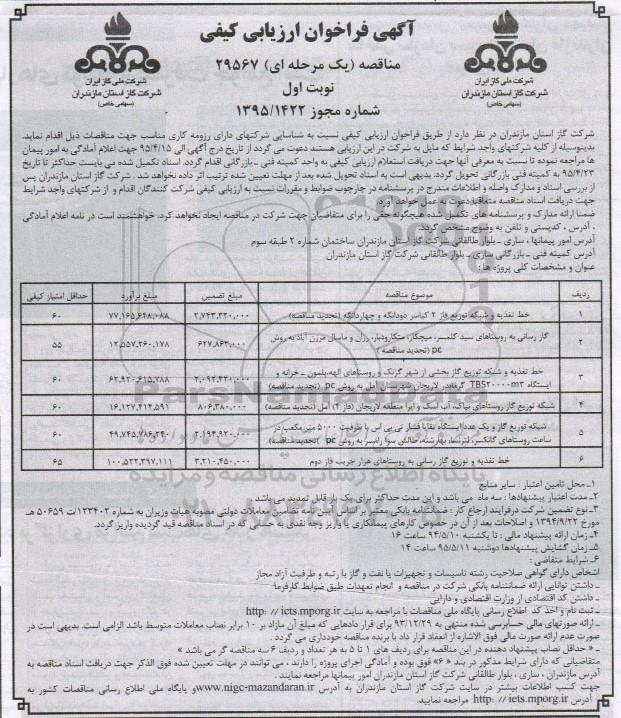 آگهی فراخوان ارزیابی کیفی
مناقصه (یک مرحله ای) ۲۹۵۶۷
نوبت اول
شماره مجوز ۱۳۹۵/۱۴۲۲
شرکت ملی گاز ایران
شرکت گاز استان مازندران
(سهامی خاص)
شرکت ملی گاز ایران
شرکت گاز استان مازندران
(سهامی خاص)
شرکت گاز استان مازندران در نظر دارد از طریق فراخوان ارزیابی کیفی نسبت به شناسایی شرکتهای دارای رزومه کاری مناسب جهت مناقصات ذیل اقدام نماید.
بدینوسیله از کلیه شرکتهای واجد شرایط که مایل به شرکت در این ارزیابی هستند دعوت می گردد از تاریخ درج آگهی الی ۹۵/۴/۱۵ جهت اعلام آمادگی به امور پیمان
ها مراجعه نموده تا نسبت به معرفی آنها جهت دریافت استعلام ارزیابی کیفی به واحد کمیته فنی ـ بازرگانی اقدام گردد. اسناد تکمیل شده می بایست حداکثر تا تاریخ
۹۵/۴/۲۳ به کمیته فنی بازرگانی تحویل گردد. بدیهی است به اسناد تحویل شده بعد از مهلت تعیین شده ترتیب اثر داده نخواهد شد . شرکت گاز استان مازندران پس
از بررسی اسناد و مدارک واصله و اطلاعات مندرج در پرسشنامه در چارچوب ضوابط و مقررات نسبت به ارزیابی کیفی شرکت کنندگان اقدام و از شرکتهای واجد شرایط
جهت دریافت اسناد مناقصه متعاقبا دعوت به عمل خواهد آورد.
ضمنا ارائه مدارک و پرسشنامه های تکمیل شده هیچگونه حقی را برای متقاضیان جهت شرکت در مناقصه ایجاد نخواهد کرد. خواهشمند است در نامه اعلام آمادگی
، آدرس ، کدپستی و تلفن به وضوح مشخص گردد.
آدرس امور پیمانها ، ساری ـ بلوار طالقانی شرکت گاز استان مازندران ساختمان شماره ۲ طبقه سوم
آدرس کمیته فنی ـ بازرگانی ساری ـ بلوار طالقانی شرکت گاز استان مازندران
عنوان و مشخصات کلی پروژه ها :
ردیف موضوع مناقصه مبلغ تضمین مبلغ برآورد حداقل امتیاز کیفی
۱ خط تغذیه و شبکه توزیع فاز ۲ کیاسر دودانگه و چهاردانگه (تجدید مناقصه) ۲,۷۴۳,۳۲۰,۰۰۰ ۷۷,۱۶۵,۶۴۸,۰۸۸ ۶۰
۲ گاز رسانی به روستاهای سید کلمسر، میچکار، متکارودبار، رزان و ماسال مرزن آباد به روش pc (تجدید مناقصه) ۶۲۷,۸۶۳,۰۰۰ ۱۲,۵۵۷,۲۶۰,۱۷۸ ۵۵
۳ خط تغذیه و شبکه توزیع گاز بخشی از شهر گزنک و روستاهای الهه،پلمون ـ خزانه و
ایستگاه TBS۲۰۰۰۰mr گرمابدر لاریجان شهرستان آمل به روش pc (تجدید مناقصه) ۲,۰۹۲,۴۲۰,۰۰۰ ۶۲,۹۲۰,۶۱۵,۷۸۸ ۶۰
۴ شبکه توزیع گاز روستاهای نیاک، آب اسک و ایرا منطقه لاریجان (فاز ۴) آمل (تجدید مناقصه) ۸۰۶,۳۸۰,۰۰۰ ۱۶,۱۲۷,۴۱۴,۵۹۱ ۶۰
۵ شبکه توزیع گاز و یک عدد ایستگاه تقلیل فشار تی بی اس با ظرفیت ۵۰۰۰ مترمکعب در
ساعت روستاهای گانکسر، لترنسا، بهارپشته، طالش سوا رامسر به روش pc (تجدید مناقصه) ۲,۱۹۴,۹۲۰,۰۰۰ ۴۹,۷۴۵,۷۸۶,۲۴۰ ۶۰
۶ خط تغذیه و توزیع گاز رسانی به روستاهای هزار جریب فاز دوم ۳,۲۱۰,۴۵۰,۰۰۰ ۱۰۰,۵۲۲,۳۹۷,۱۱۱ ۶۵
۱ـ محل تامین اعتبار : سایر منابع
۲ـ مدت اعتبار پیشنهادها : سه ماه می باشد و این مدت حداکثر برای یک بار قابل تمدید می باشد .
۳ـ نوع تضمین شرکت درفرایند ارجاع کار : ضمانتنامه بانکی معتبر بر اساس آئین نامه تضامین معاملات دولتی مصوبه هیات وزیران به شماره ۱۲۳۴۰۲/ت ۵۰۶۵۹ هـ
مورخ ۱۳۹۴/۹/۲۲ و اصلاحات بعد از آن در خصوص کارهای پیمانکاری یا واریز وجه نقدی به حسابی که در اسناد مناقصه قید گردیده واریز گردد.
۴ـ زمان ارائه پیشنهاد مالی : تا یکشنبه ۹۴/۵/۱۰ ساعت ۱۶
۵ـ زمان گشایش پیشنهادها دوشنبه ۹۵/۵/۱۱ ساعت ۱۴
۶ـ شرایط متقاضی :
اشخاص دارای گواهی صلاحیت رشته تاسیسات و تجهیزات یا نفت و گاز با رتبه و ظرفیت آزاد مجاز
ـ داشتن توانایی ارائه ضمانتنامه بانکی شرکت در مناقصه و انجام تعهدات طبق ضوابط کارفرما
ـ داشتن کد اقتصادی از وزارت اقتصادی و دارایی
ـ ثبت نام و اخذ کد اطلاع رسانی پایگاه ملی مناقصات با مراجعه به سایت http: // iets.mporg.ir
ـ ارائه صورتهای مالی حسابرسی شده منتهی به ۹۳/۱۲/۲۹ برای قرار دادهایی که مبلغ آن مازاد بر ۱۰ برابر نصاب معاملات متوسط باشد الزامی است. بدیهی است در
صورت عدم ارائه صورت مالی فوق الاشاره از انعقاد قرار داد با برنده مناقصه خودداری می گردد .
ـ « حداقل نصاب پیشنهاد دهنده در این مناقصه برای ردیف های ۱ تا ۵ به هر تعداد و ردیف ۶ سه مناقصه گر می باشد »
متقاضیانی که دارای شرایط مذکور در بند « ۶ » فوق بوده و آمادگی اجرای پروژه را دارند ، می توانند در مهلت تعیین شده فوق الذکر جهت دریافت اسناد مناقصه به
آدرس مازندران ، ساری ، بلوار طالقانی شرکت گاز استان مازندران امور پیمانها مراجعه نمایند .
جهت کسب اطلاعات بیشتر در سایت شرکت گاز استان مازندران به آدرس www.nigc-mazandaran.ir و پایگاه ملی اطلاع رسانی مناقصات کشور به
آدرس http: // iets.mporg.ir مراجعه نمایید.
ParsNamadData
پایگاه اطلاع رسانی مناقصه و مزایده